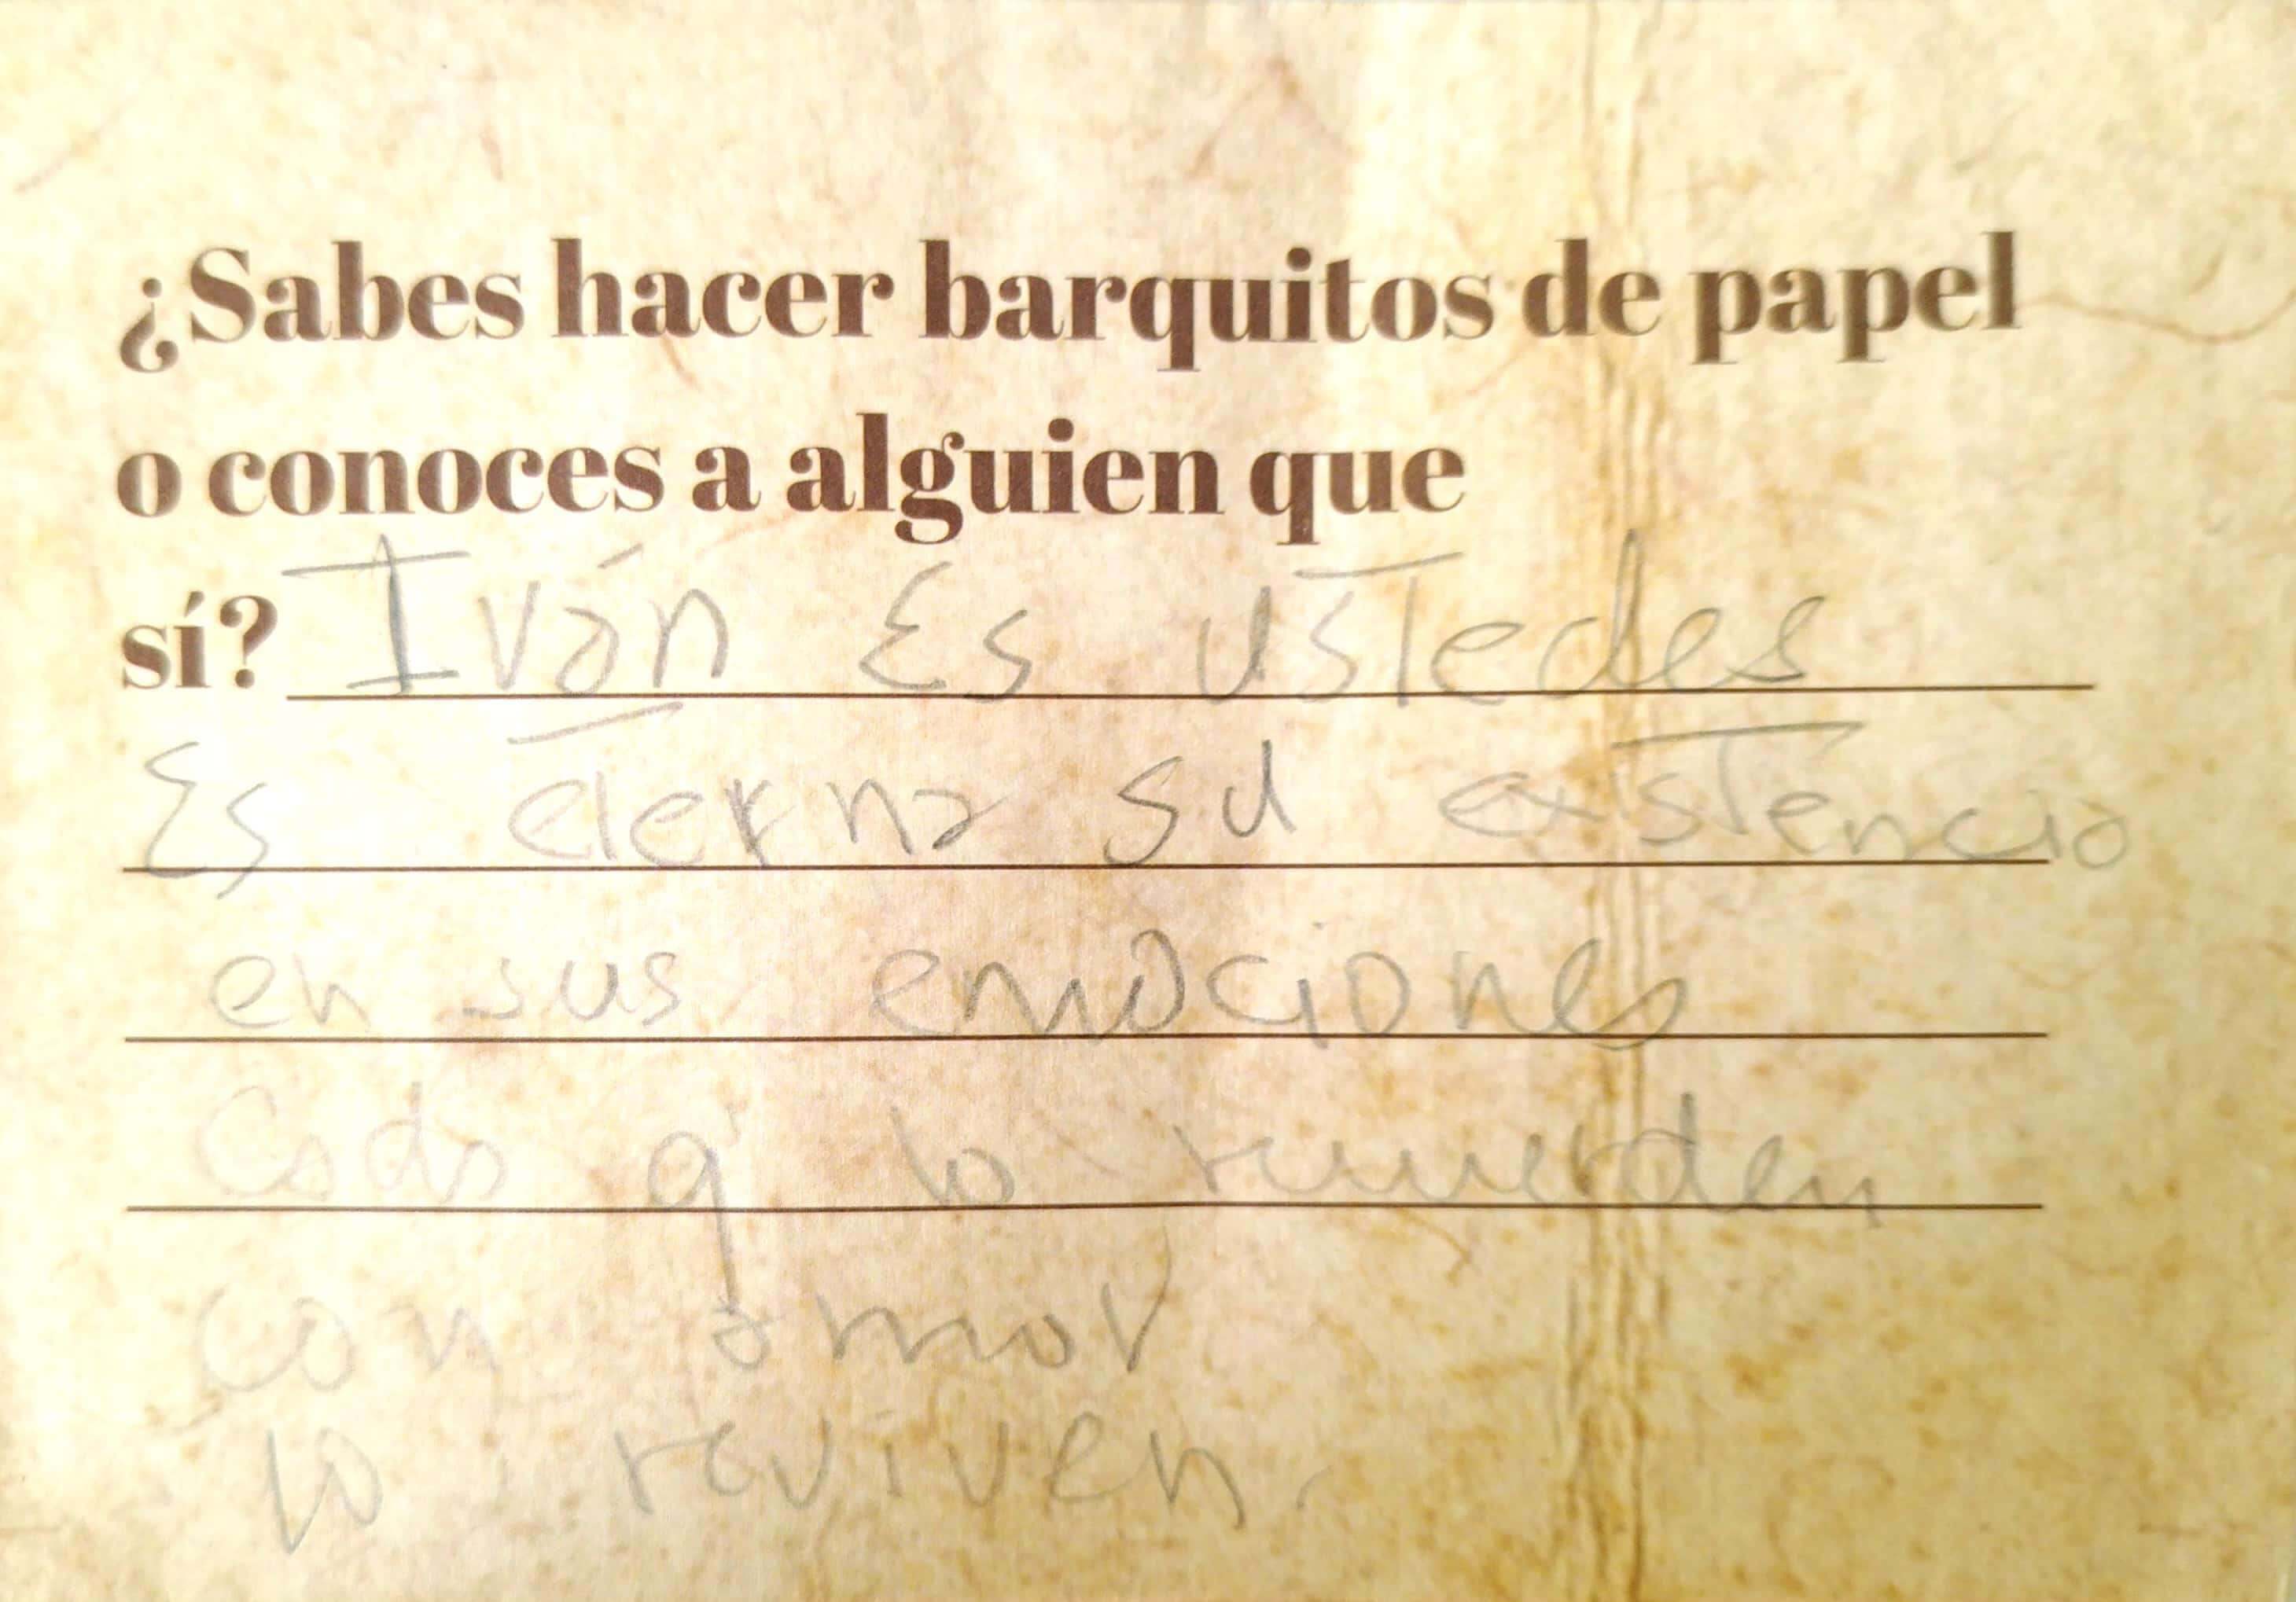 ¿Sabes hacer barquitos de papel
o conoces a alguien que
sí? Iván Es usTedes
Es eTerna su exisTencia
en sus emociones
Cada q' lo recuerden
con amor
lo reviven.